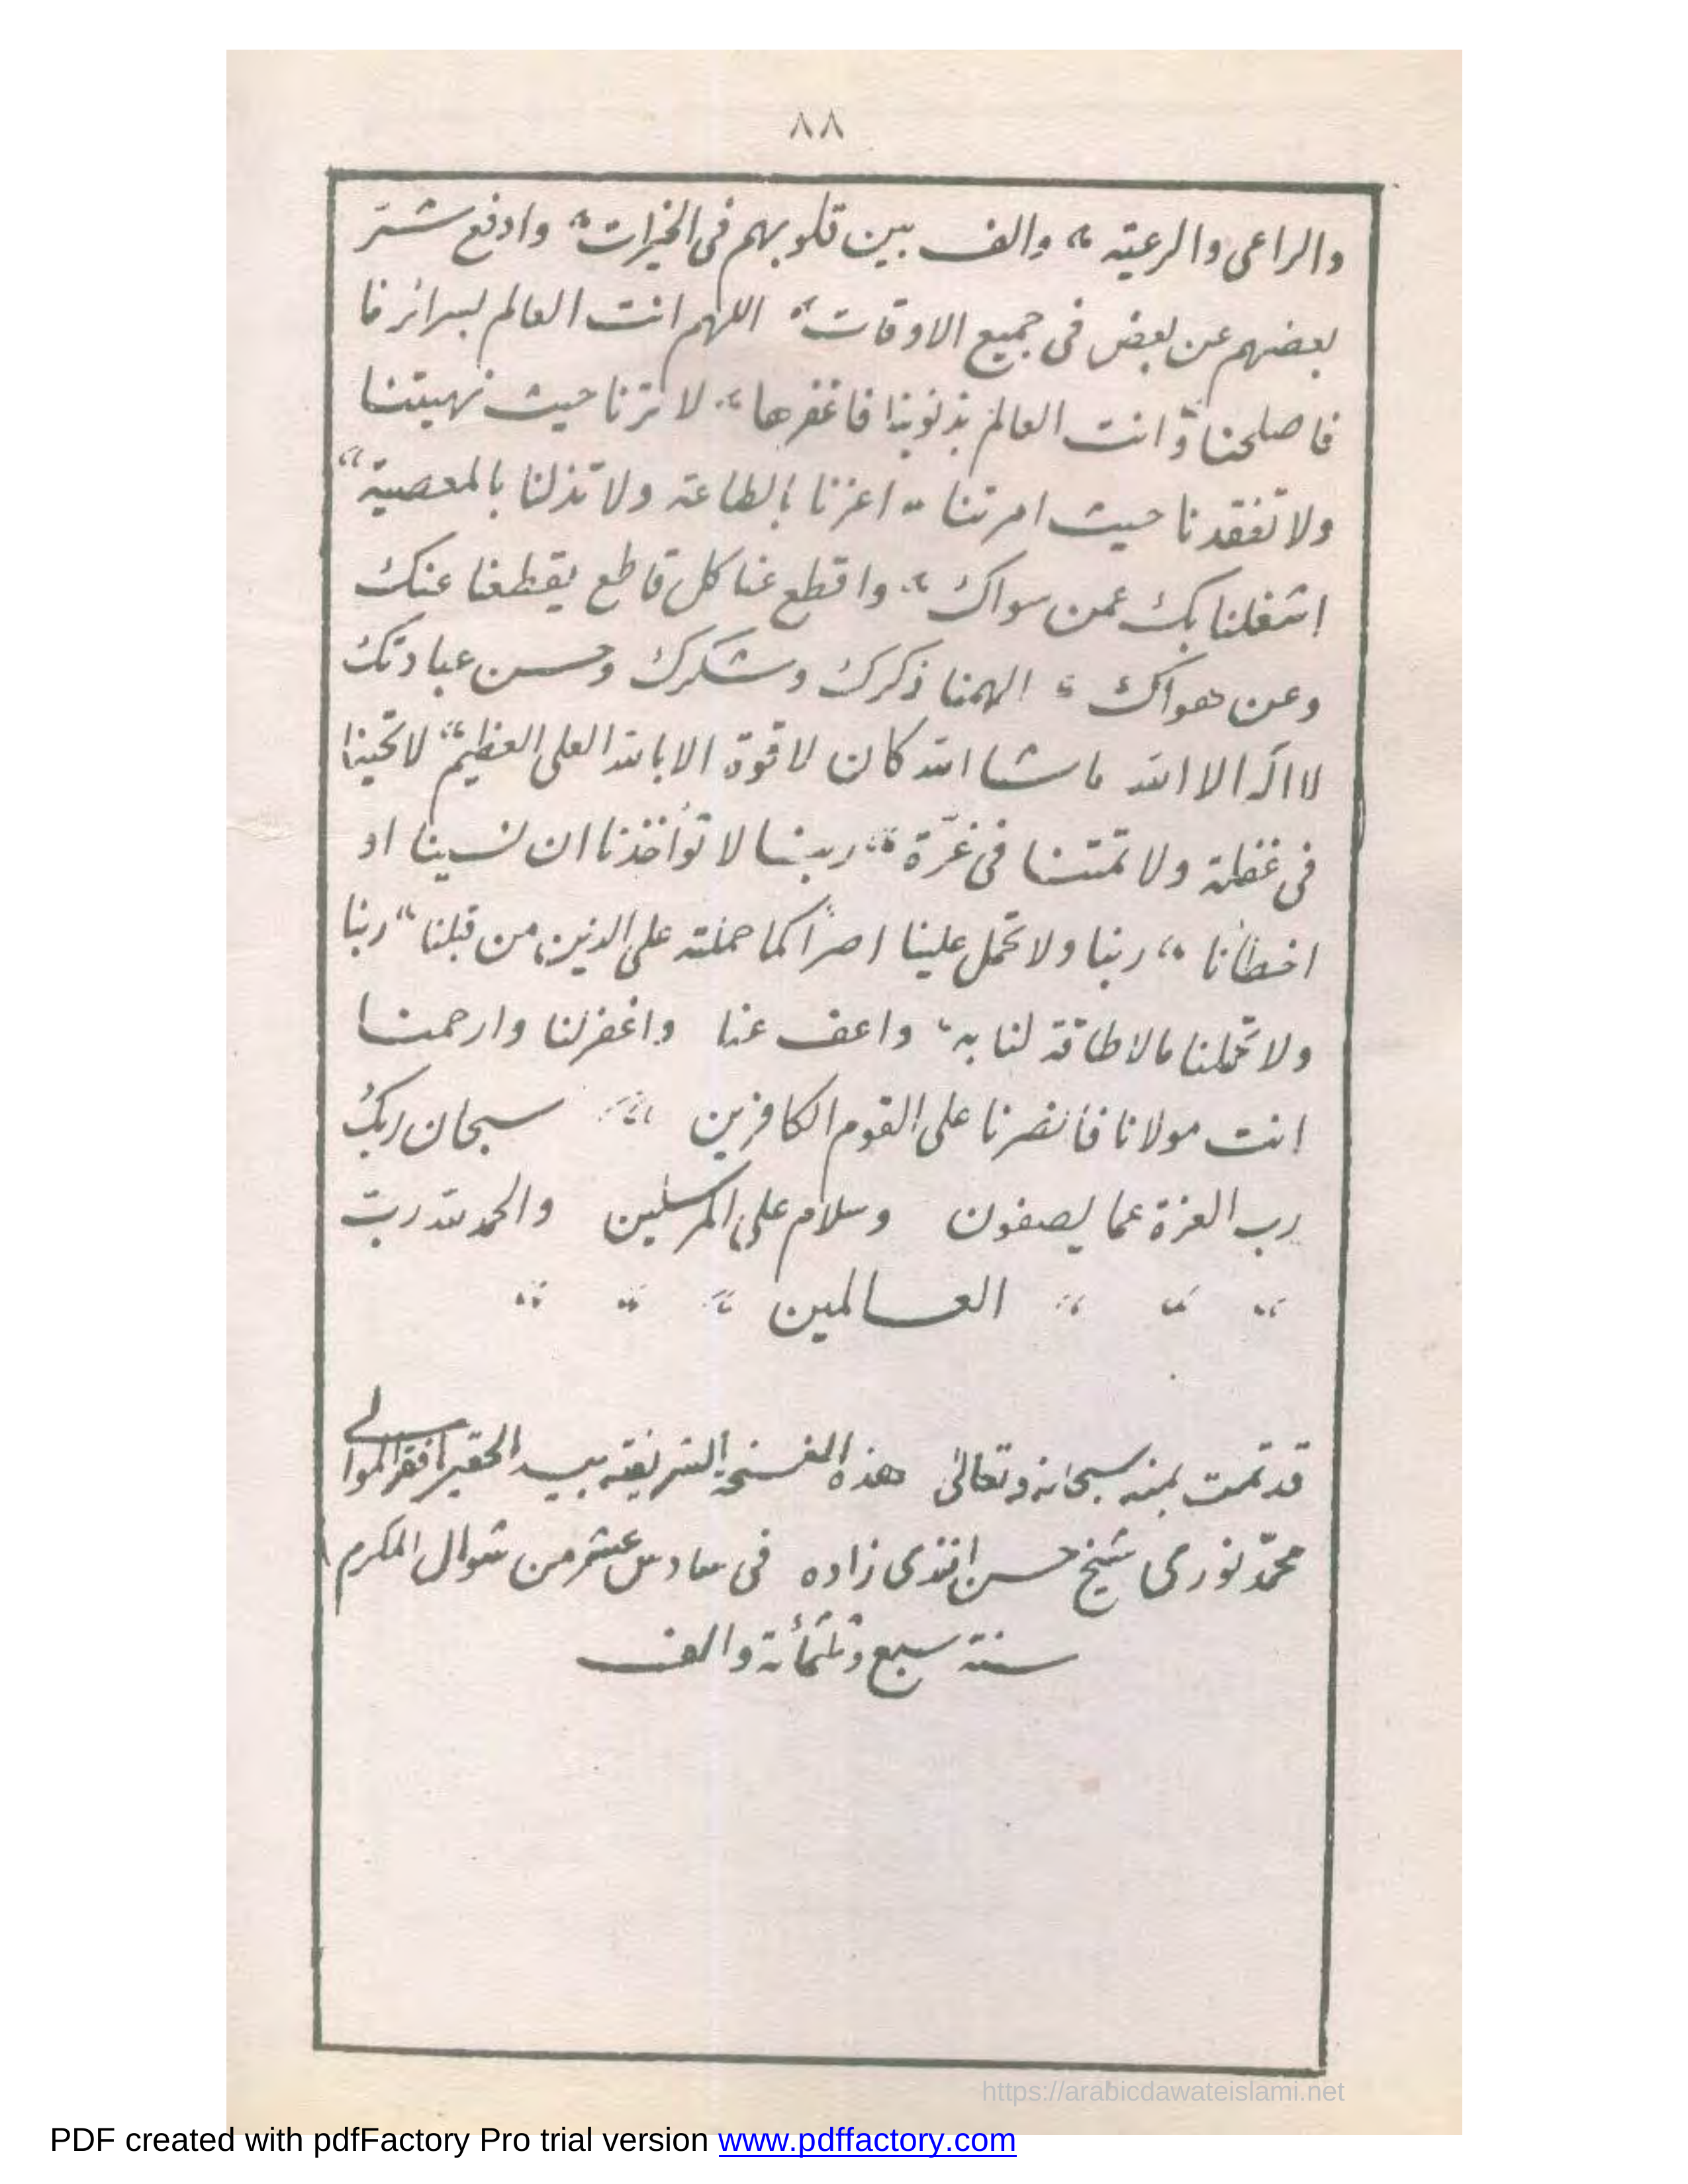 ٨٨
والراعى والرعية والف بين قلوبهم فى الخيرات وادفع شر
بعضهم عن بعض فى جميع الاوقات اللهم انت العالم بسرائرنا
فاصلحنا وانت العالم بذنوبنا فاغفرها لا ترنا حيث نهيتنا
ولا تفقدنا حيث امرتنا اعزنا بالطاعة ولا تذلنا بالمعصية
اشغلنا بك عمن سواك واقطع عنا كل قاطع يقطعنا عنك
وعن هواك الهمنا ذكرك وشكرك وحسن عبادتك
لا اله الا الله ما شا الله كان لا قوة الا بالله العلى العظيم لا تحينا
فى غفلة ولا تمتنا فى غرّة ربنا لا تؤاخذنا ان نسينا او
اخطأنا ربنا ولا تحمل علينا اصراً كما حملته على الذين من قبلنا ربنا
ولا تحملنا مالا طاقة لنا به واعف عنا واغفرلنا وارحمنا
انت مولانا فانصرنا على القوم الكافرين سبحان ربك
رب العزة عما يصفون وسلام على المرسلين والحمد لله ربّ
العالمين
قد تمت بمنه سبحانه وتعالى هذه النسخة الشريفة بيد الحقير افقر الموالى
محمّد نورى شيخ حسن افندى زاده فى سادس عشر من شوال المكرم
سنة سبع وثلثمائة والف
https://arabicdawateislami.net
PDF created with pdfFactory Pro trial version www.pdffactory.com